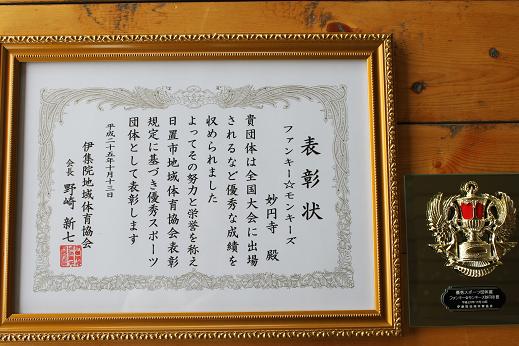 表彰状
ファンキー☆モンキーズ
妙円寺 殿
貴団体は全国大会に出場
されるなど優秀な成績を
収められました
よってその努力と栄誉を称え
日置市地域体育協会表彰
規定に基づき優秀スポーツ
団体として表彰します
平成二十五年十月十三日
伊集院地域体育協会
会長 野崎 新七
優秀スポーツ団体賞